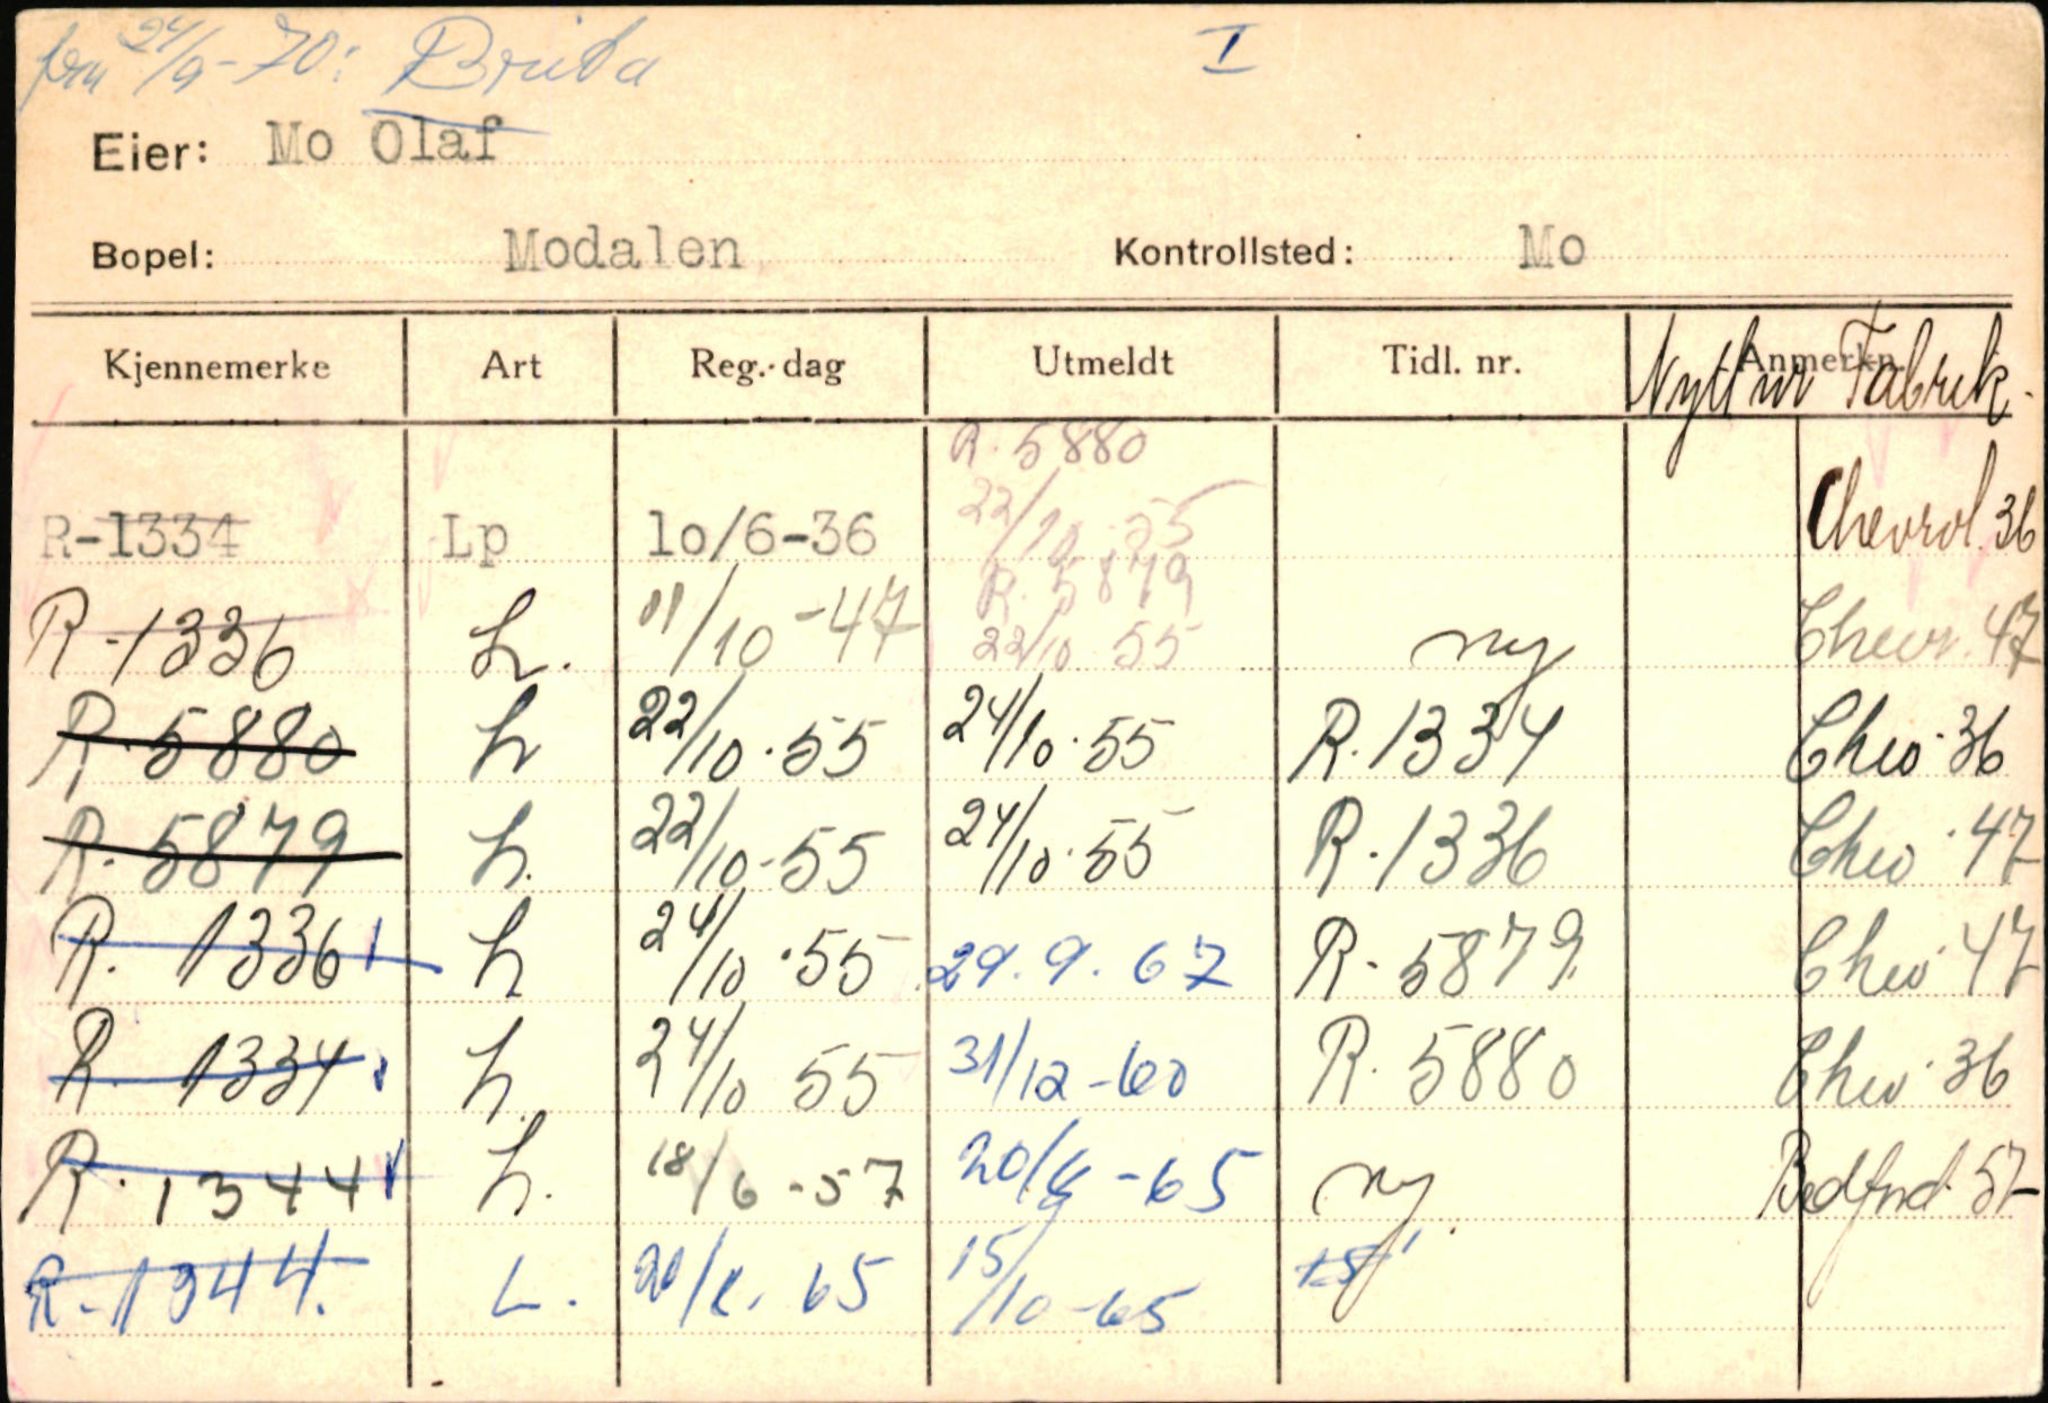 fra 24/9-70: Brita I
Eier: Mo Olaf
Bopel: Modalen Kontrollsted: Mo
Kjennemerke Art Reg.-dag Utmeldt Tidl. nr. Anmerkn.
Nytt nr Fabrik.
R. 5880
R-1334 Lp 10/6-36 22/10-55 Chevrol. 36
R. 5879
R-1336 L. 11/10-47 22/10 55 ny Chevr. 47
R. 5880 L 22/10.55 24/10.55 R.1334 Chev. 36
R. 5879 L. 22/10-55 24/10.55 R.1336 Chev. 47
R. 1336 L 24/10.55 29.9.67 R-5879. Chev. 47
R. 1334 L. 24/10 55 31/12-60 R. 5880 Chev. 36
R. 1344 L. 18/6-57 -65 ny. Bedford 57
R-1344. L. 65 15/10-65